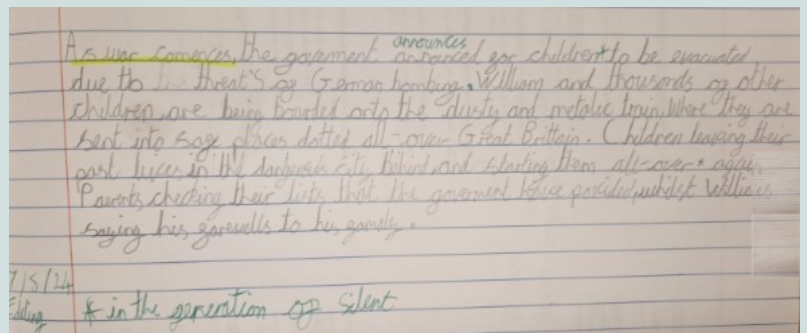 announces
As war comences, the goverment annonced for children* to be evacuated
due to the threat's of German bombing. William and thousands of other
children, are being bourded onto the dusty and metalic train. Where they are
sent into safe places dotted all-over Great Brittain. Children leaving their
past lives in the city behind, and starting them all-over* again.
Parents, checking their lists that the goverment have provided, whilst William is
saying his farewells to his family.
7/5/24
Editing * in the generation of silent